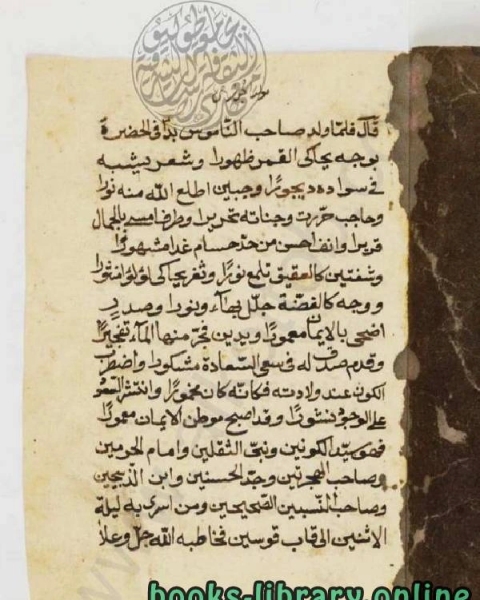 قال فلما ولد صاحب الناموس بدا في الحضرة
بوجه يحاكى القمر ظهورا وشعر يشبه
في سواده ديجورا وجبين اطلع الله منه نورا
وحاجب حررت وجناته تحريرا وطرف امسى بالجمال
قريرا وانف احسن من حد حسام غدا مشهورا
وشفتين كالعقيق تلمع نورا وثغر يحاكى لؤلؤا منثورا
ووجه كالفضة جلل بهاء ونورا وصدر
اضحى بالايمان معمورا ويدين فجر منها الماء تفجيرا
وقدم صدق له في سعى السعادة مشكورا واضطرب
الكون عند ولادته فكانه كان مخمورا وانتشر السعود
على الوجود نشورا وقد اصبح موطن الايمان معمورا
فهو سيد الكونين ونبى الثقلين وامام الحرمين
وصاحب الهجرتين وجد الحسنين وابن الذبيحين
وصاحب النسبين الصحيحين ومن اسرى به ليلة
الاثنين الى قاب قوسين فخاطبه الله جل وعلا
books-library.online